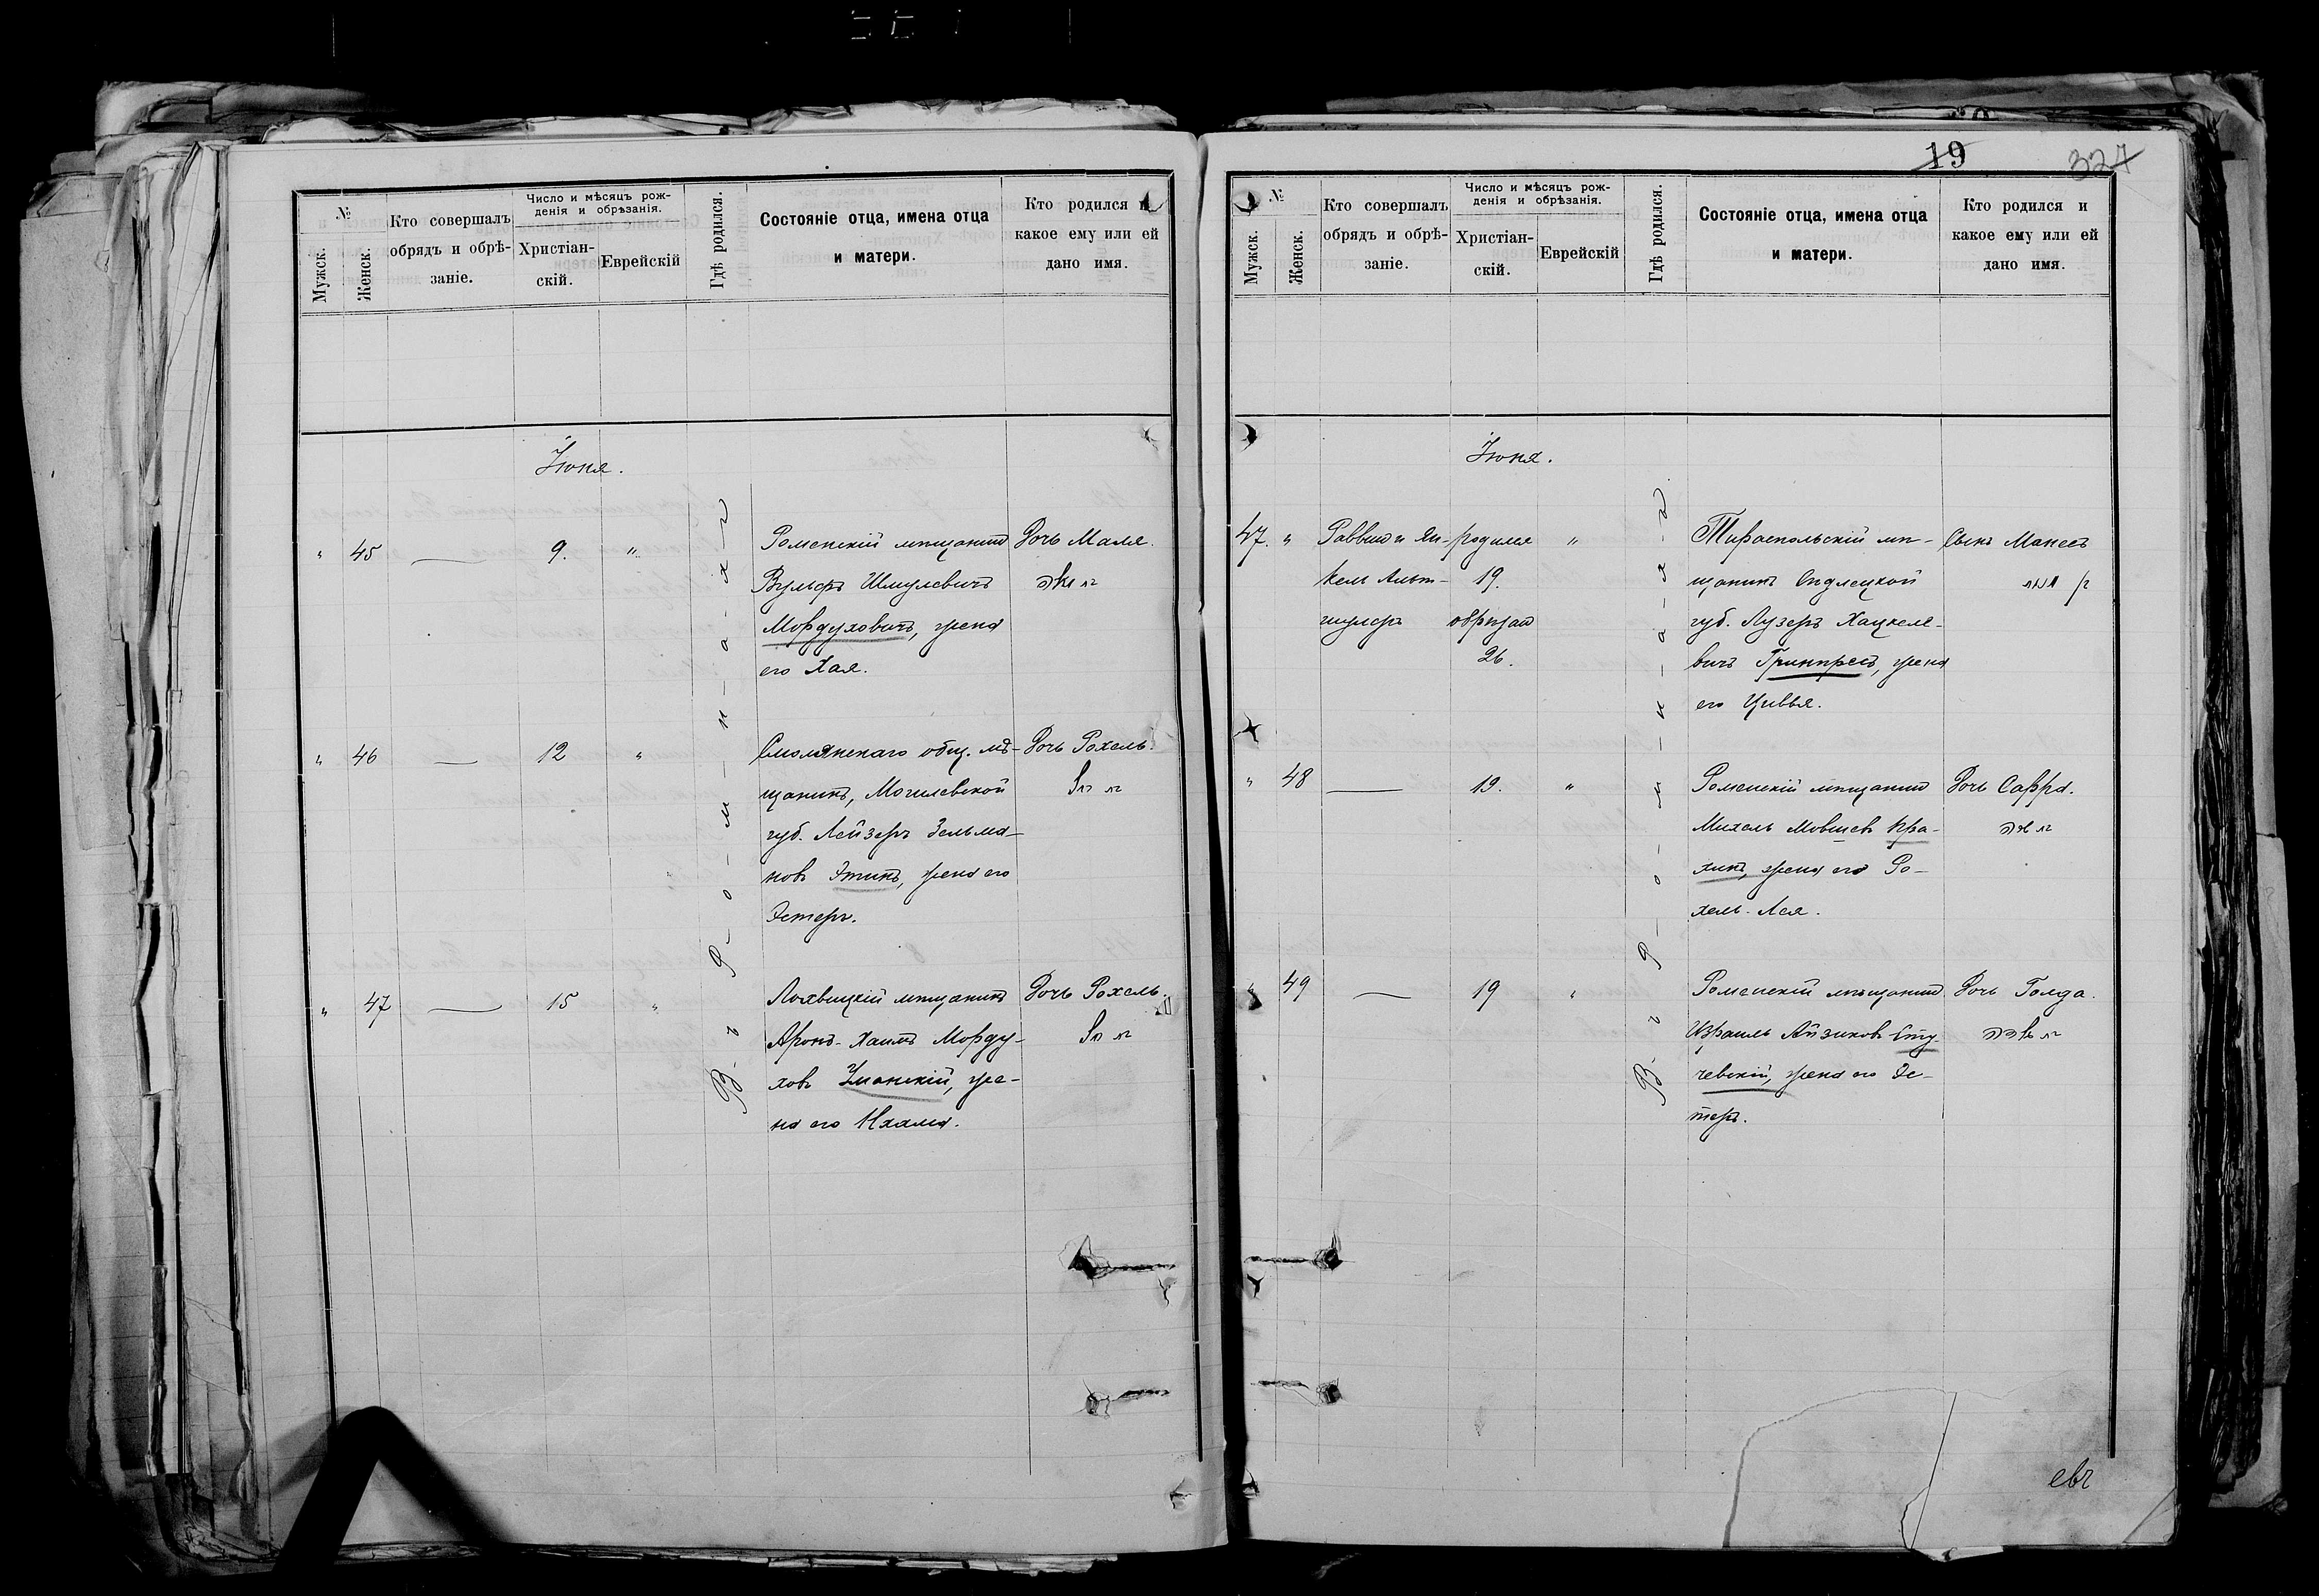 №
Мужск.
Женск.
Кто совершалъ
обрядъ и обрѣ-
заніе.
Число и мѣсяцъ рож-
денія и обрѣзанія.
Христіан-
скій.
Еврейскій
Гдѣ родился.
Состояніе отца, имена отца
и матери.
Кто родился и
какое ему или ей
дано имя.
Іюня.
В-ъ Р-о-м-н-а-х-ъ
" 45 — 9. "
Роменскій мѣщанинъ
Вульфъ Шмулевичъ
Мордуховичъ, жена
его Хая.
Дочь Маля.
" 46 — 12 "
Смолянскаго общ. мѣ-
щанинъ, Могилевской
губ. Лейзеръ Зельма-
новъ Этинъ, жена его
Эстеръ.
Дочь Рохель.
" 47 — 15 "
Лохвицкій мѣщанинъ
Аронъ-Хаимъ Морду-
ховъ Уманскій, же-
на его Нхама.
Дочь Рохель.
19
327
№
Мужск.
Женск.
Кто совершалъ
обрядъ и обрѣ-
заніе.
Число и мѣсяцъ рож-
денія и обрѣзанія.
Христіан-
скій.
Еврейскій
Гдѣ родился.
Состояніе отца, имена отца
и матери.
Кто родился и
какое ему или ей
дано имя.
Іюня.
В-ъ Р-о-м-н-а-х-ъ
47. "
Раввинъ Ян-
кель Альт-
шулеръ
родился
19.
обрѣзан
26.
"
Тираспольскій мѣ-
щанинъ
губ. Лузеръ Хацкеле-
вичъ Гринпресъ, жена
его Цивья.
Сынъ Манесъ
" 48 — 19. "
Роменскій мѣщанинъ
Михель Мовшевъ Кра-
хинъ, жена его Ро-
хель-Лея.
Дочь Сарра.
" 49 — 19 "
Роменскій мѣщанинъ
Израиль Айзиковъ Сту-
чевскій, жена его Эс-
теръ.
Дочь Голда.